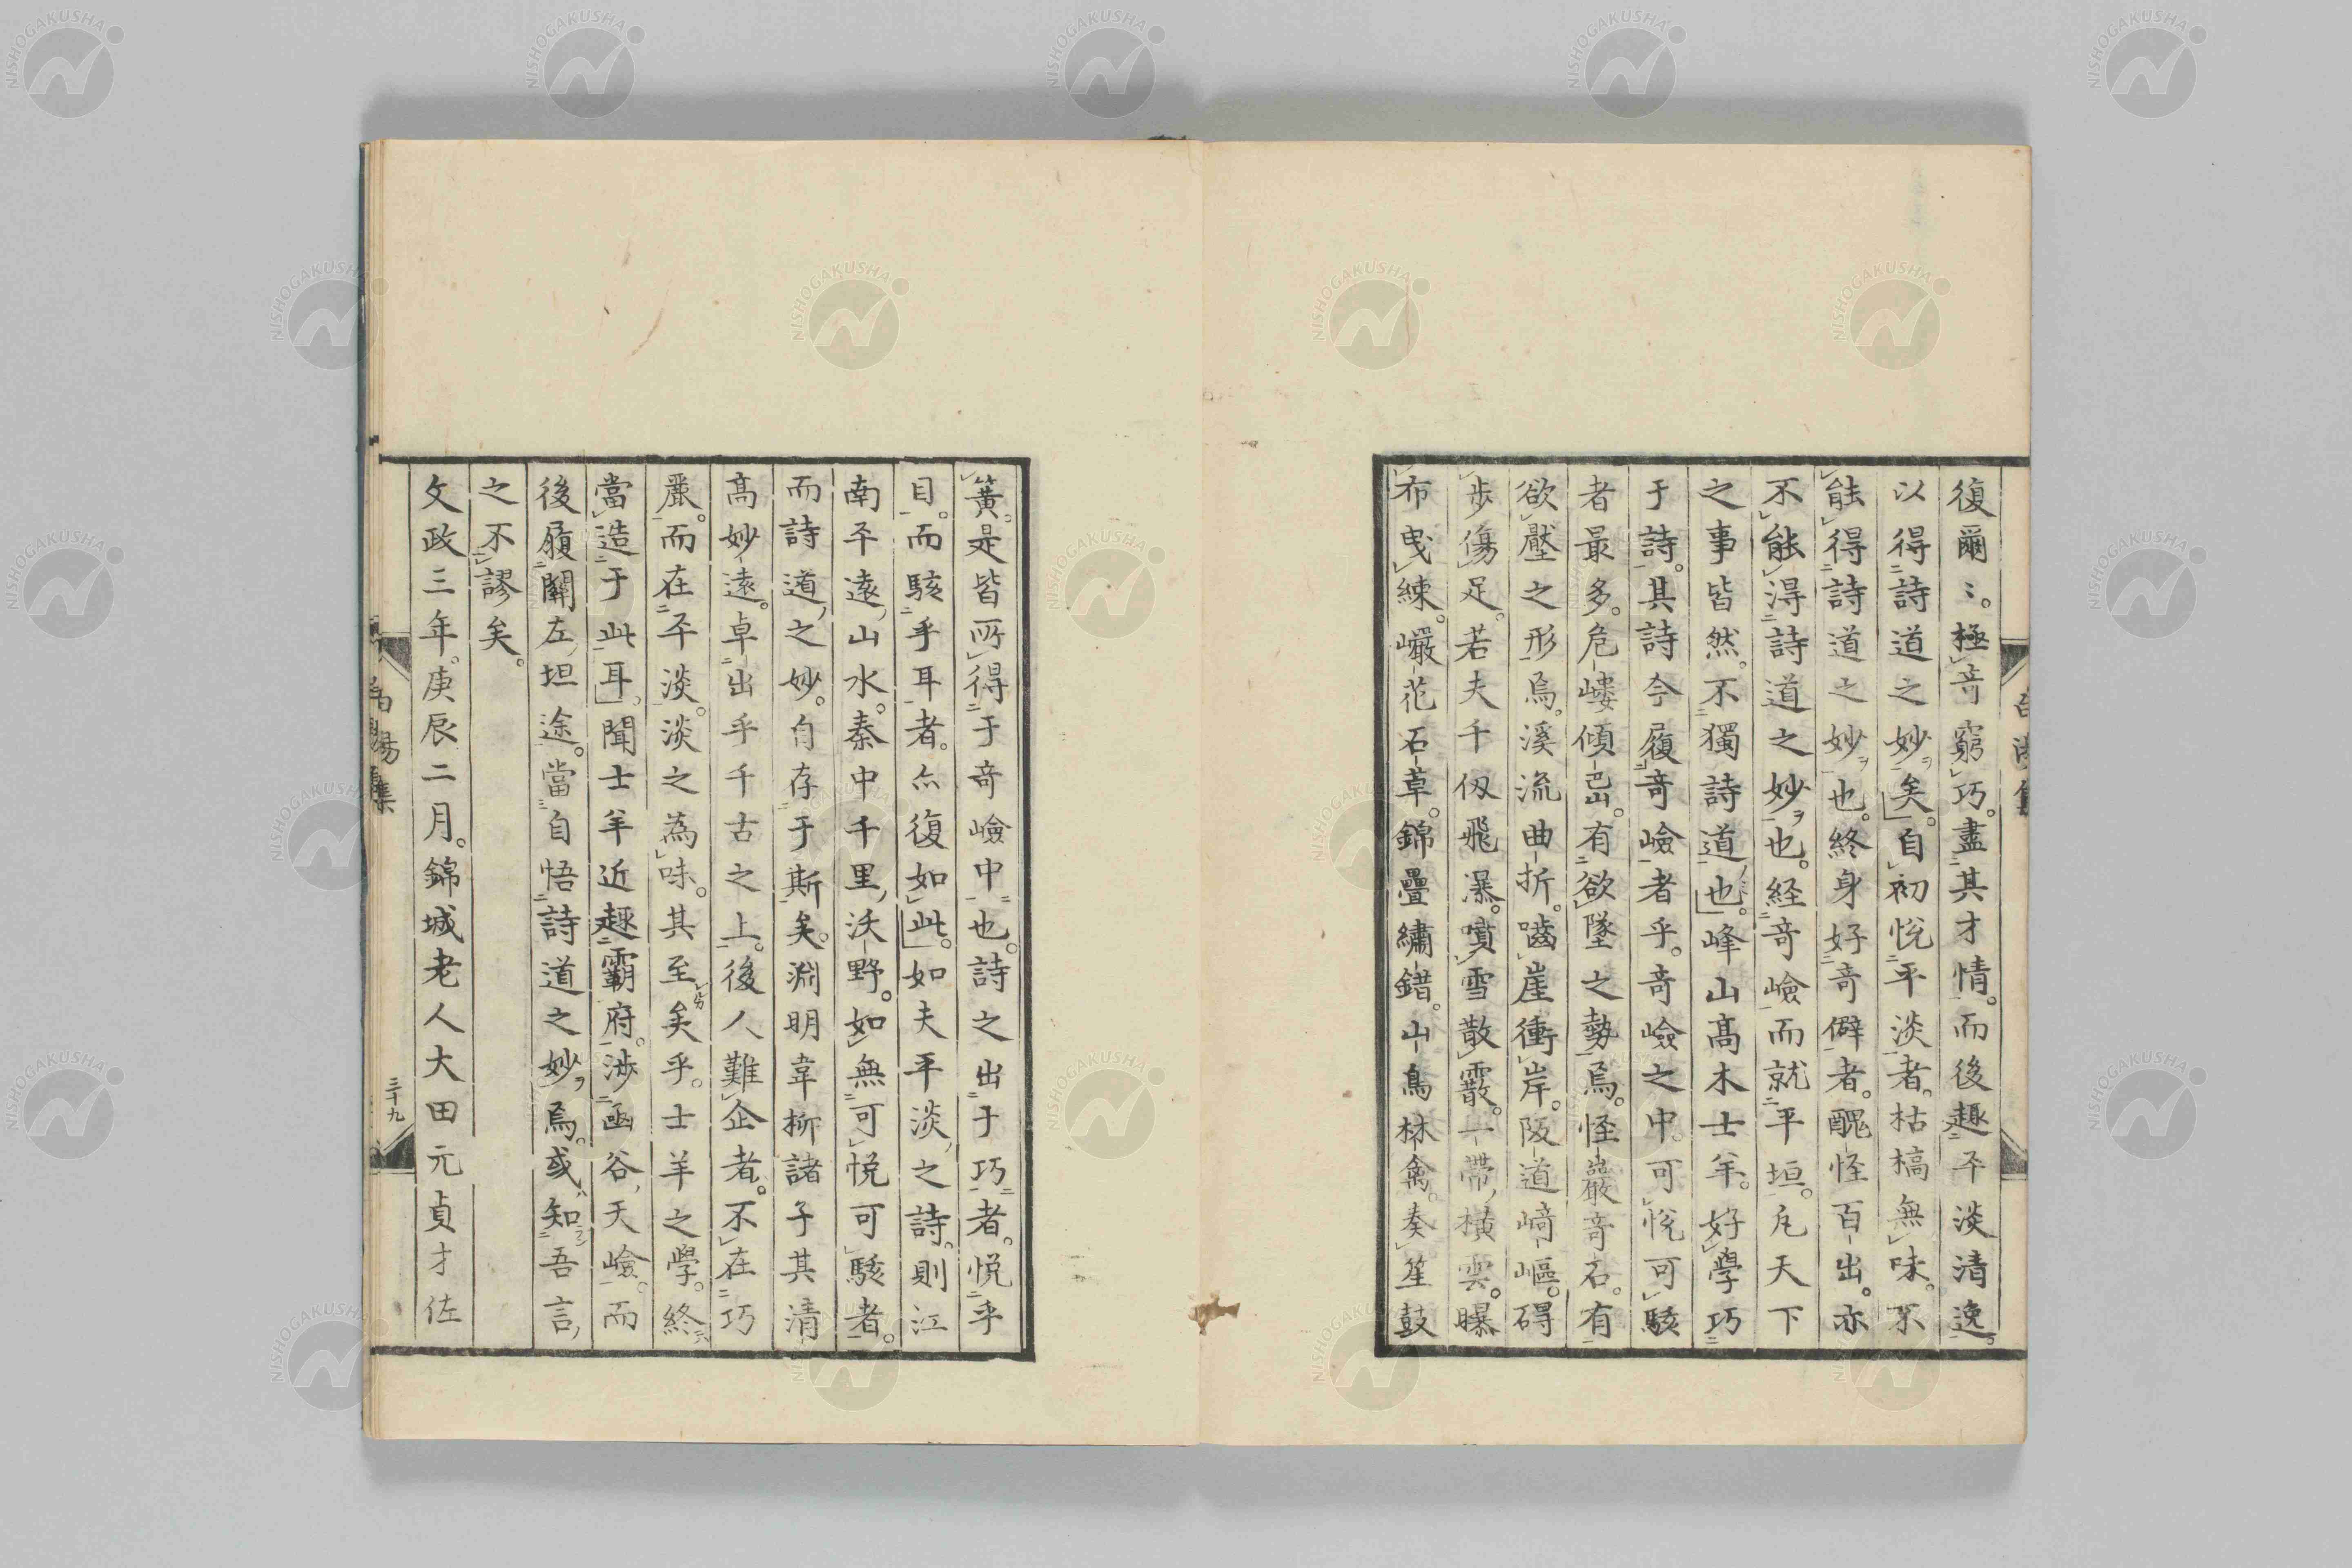 復爾〻。極竒窮巧。盡其才情。而後趣平淡清逸。
以得詩道之妙矣。自初悅平淡者。枯槁無味。不
能得詩道之妙也。終身好竒僻者。醜怪百出。亦
不能得詩道之妙也。経竒嶮而就平垣。凡天下
之事皆然。不獨詩道也。峰山髙木士羊。好學巧
于詩。其詩今履竒嶮者乎。竒嶮之中。可悅可駭
者最多。危嶁傾嵒。有欲墜之勢焉。怪巖竒石。有
欲壓之形焉。溪流曲折。嚙崖衝岸。阪道﨑嶇。碍
歩傷足。若夫千仭飛瀑。噴雪散霰。一帶横雲。曝
布曳練。巗花石草。錦疊繡錯。山鳥林禽。奏笙鼓
簧。是皆所得于竒嶮中也。詩之出于巧者。悦乎
目。而駭乎耳者。亦復如此。如夫平淡之詩。則江
南平遠山水。秦中千里沃野。如無可悦可駭者。
而詩道之妙。自存于斯矣。淵明韋柳諸子其清
髙妙遠。卓出乎千古之上。後人難企者。不在巧
麗。而在平淡。淡之為味。其至矣乎。士羊之學。終
當造于此耳。聞士羊近趣霸府。渉函谷天嶮。而
後履關左坦途。當自悟詩道之妙焉。或知吾言
之不謬矣。
文政三年。庚辰二月。錦城老人大田元貞才佐
三十九
NISHOGAKUSHA